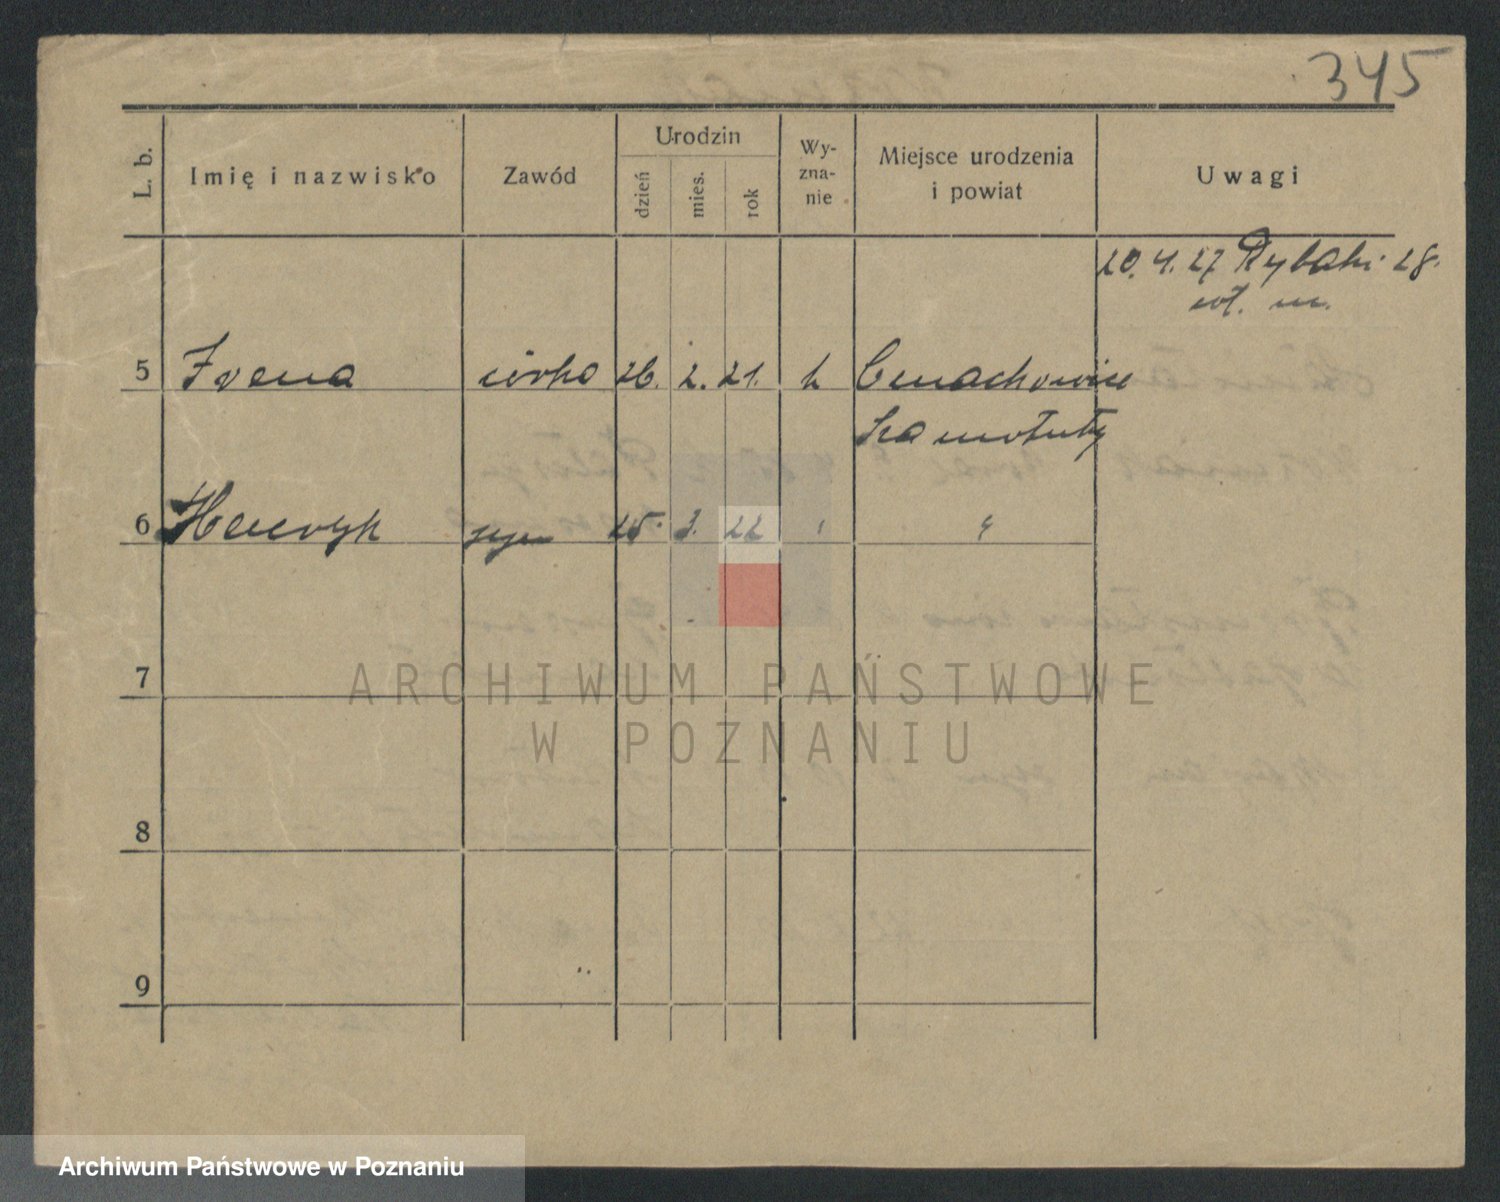 345
L. b.
Imię i nazwisko
Zawód
Urodzin
dzień
mies.
rok
Wy-
zna-
nie
Miejsce urodzenia
i powiat
Uwagi
20. 4. 27 Rybaki 28.
wł. m.
5 Irena córka 26. 2. 21. k Emachowice
Szamotuły
6 Henryk syn 25. 3. 22 " "
7
8
9
ARCHIWUM PAŃSTWOWE
W POZNANIU
Archiwum Państwowe w Poznaniu